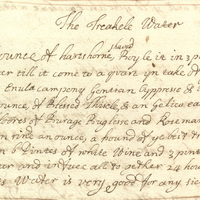 The Treakele Water
ounce of hartshorne shaved Boyle it in 3 p
ter till it come to a quart yn take of
Enula campony Gentian Cyppress &
ounce of Blesed Thisle, & an Gelica ea
flores of Burage Buglosse and Rosemar
on nine ounce, a pound of ye best tr
n 6 Pintes of white Wine and 3 pint
er and infuce all to gether 24 hour
is Water is very good for any sic